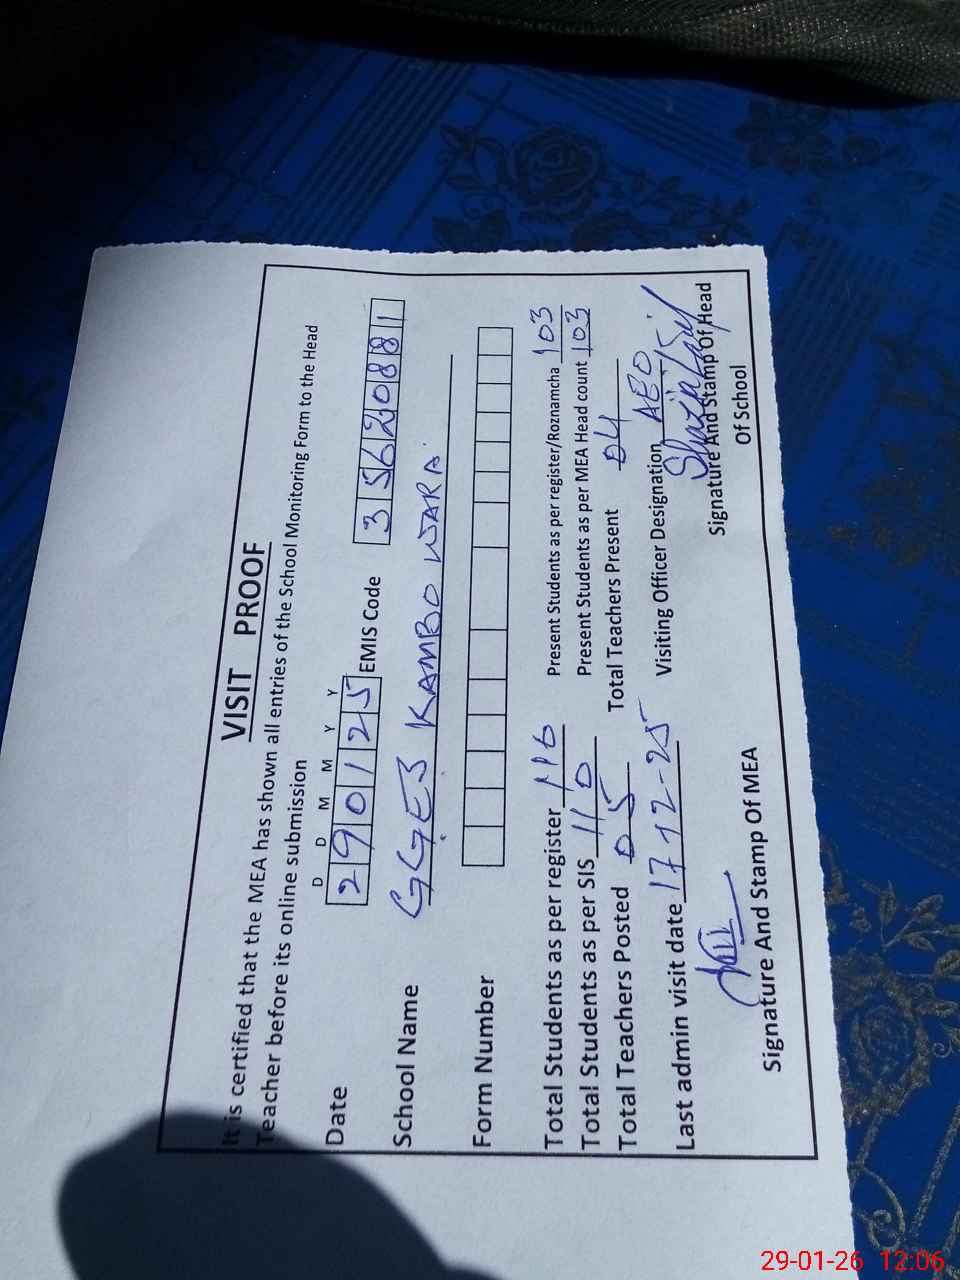 VISIT PROOF
It is certified that the MEA has shown all entries of the School Monitoring Form to the Head
Teacher before its online submission
D D M M Y Y
Date 290125 EMIS Code 35620881
School Name GGES KAMBO WARA
Form Number
Total Students as per register 116 Present Students as per register/Roznamcha 103
Total Students as per SIS 110 Present Students as per MEA Head count 103
Total Teachers Posted 05 Total Teachers Present 04
Last admin visit date 17-12-25 Visiting Officer Designation AEO
Signature And Stamp Of MEA Signature And Stamp Of Head
Of School
29-01-26 12:06